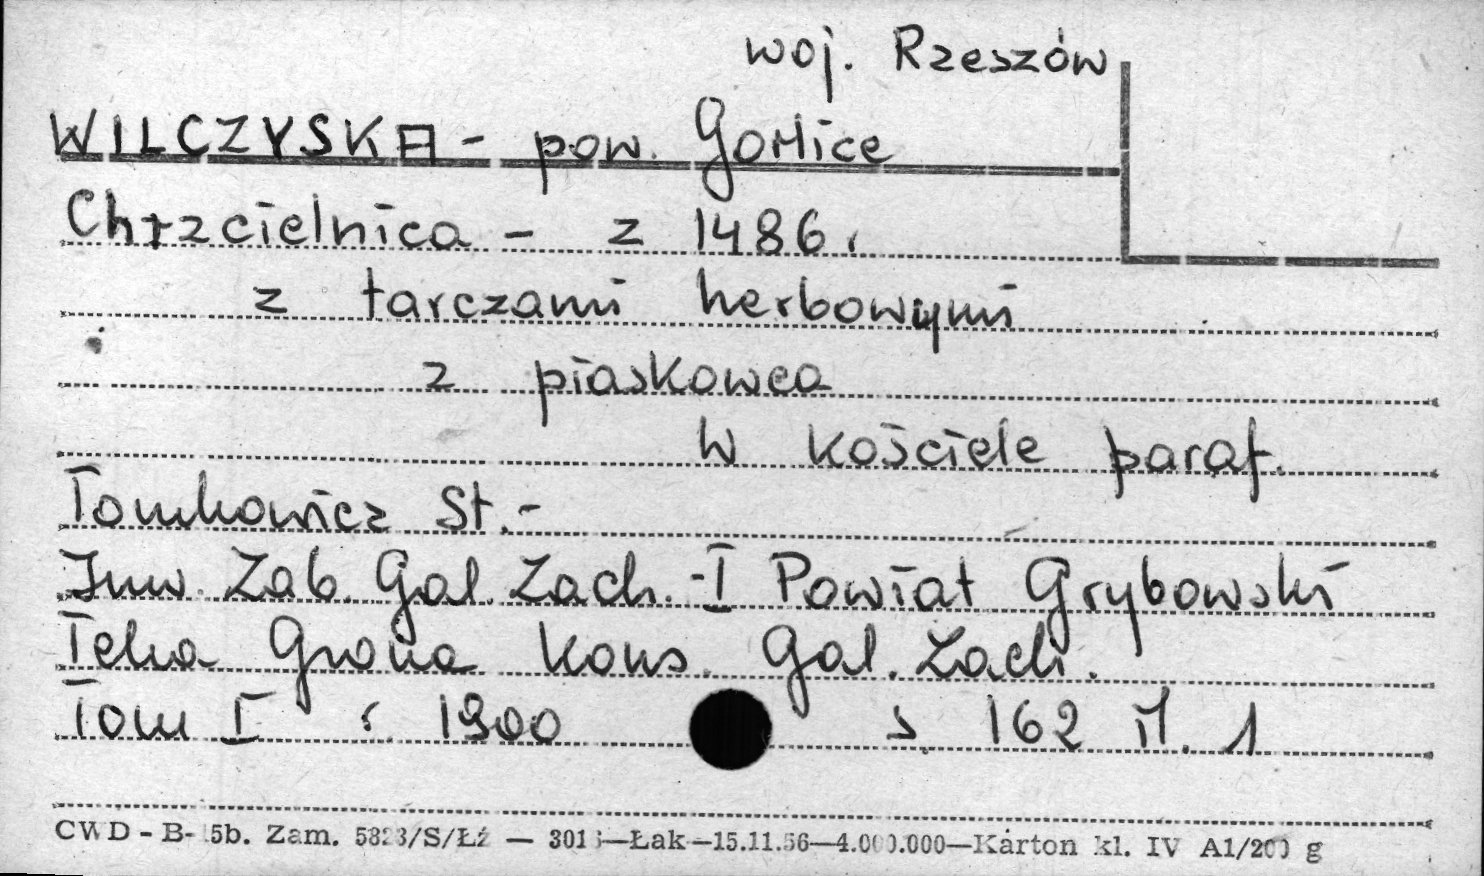 woj. Rzeszów
WILCZYSKA - pow. Gorlice
Chrzcielnica - z 1486 r
z tarczami herbowymi
z piaskowca
w kościele paraf.
Tomkowicz St. -
Inw. Zab. Gal. Zach. - I Powiat Grybowski
Teka Grona Kons. Gal. Zach.
Tom I r. 1900 s. 162 il. 1
CWD - B- 5b. Zam. 5823/S/Łź — 301 —Łak—15.11.56—4.000.000—Karton kl. IV A1/200 g